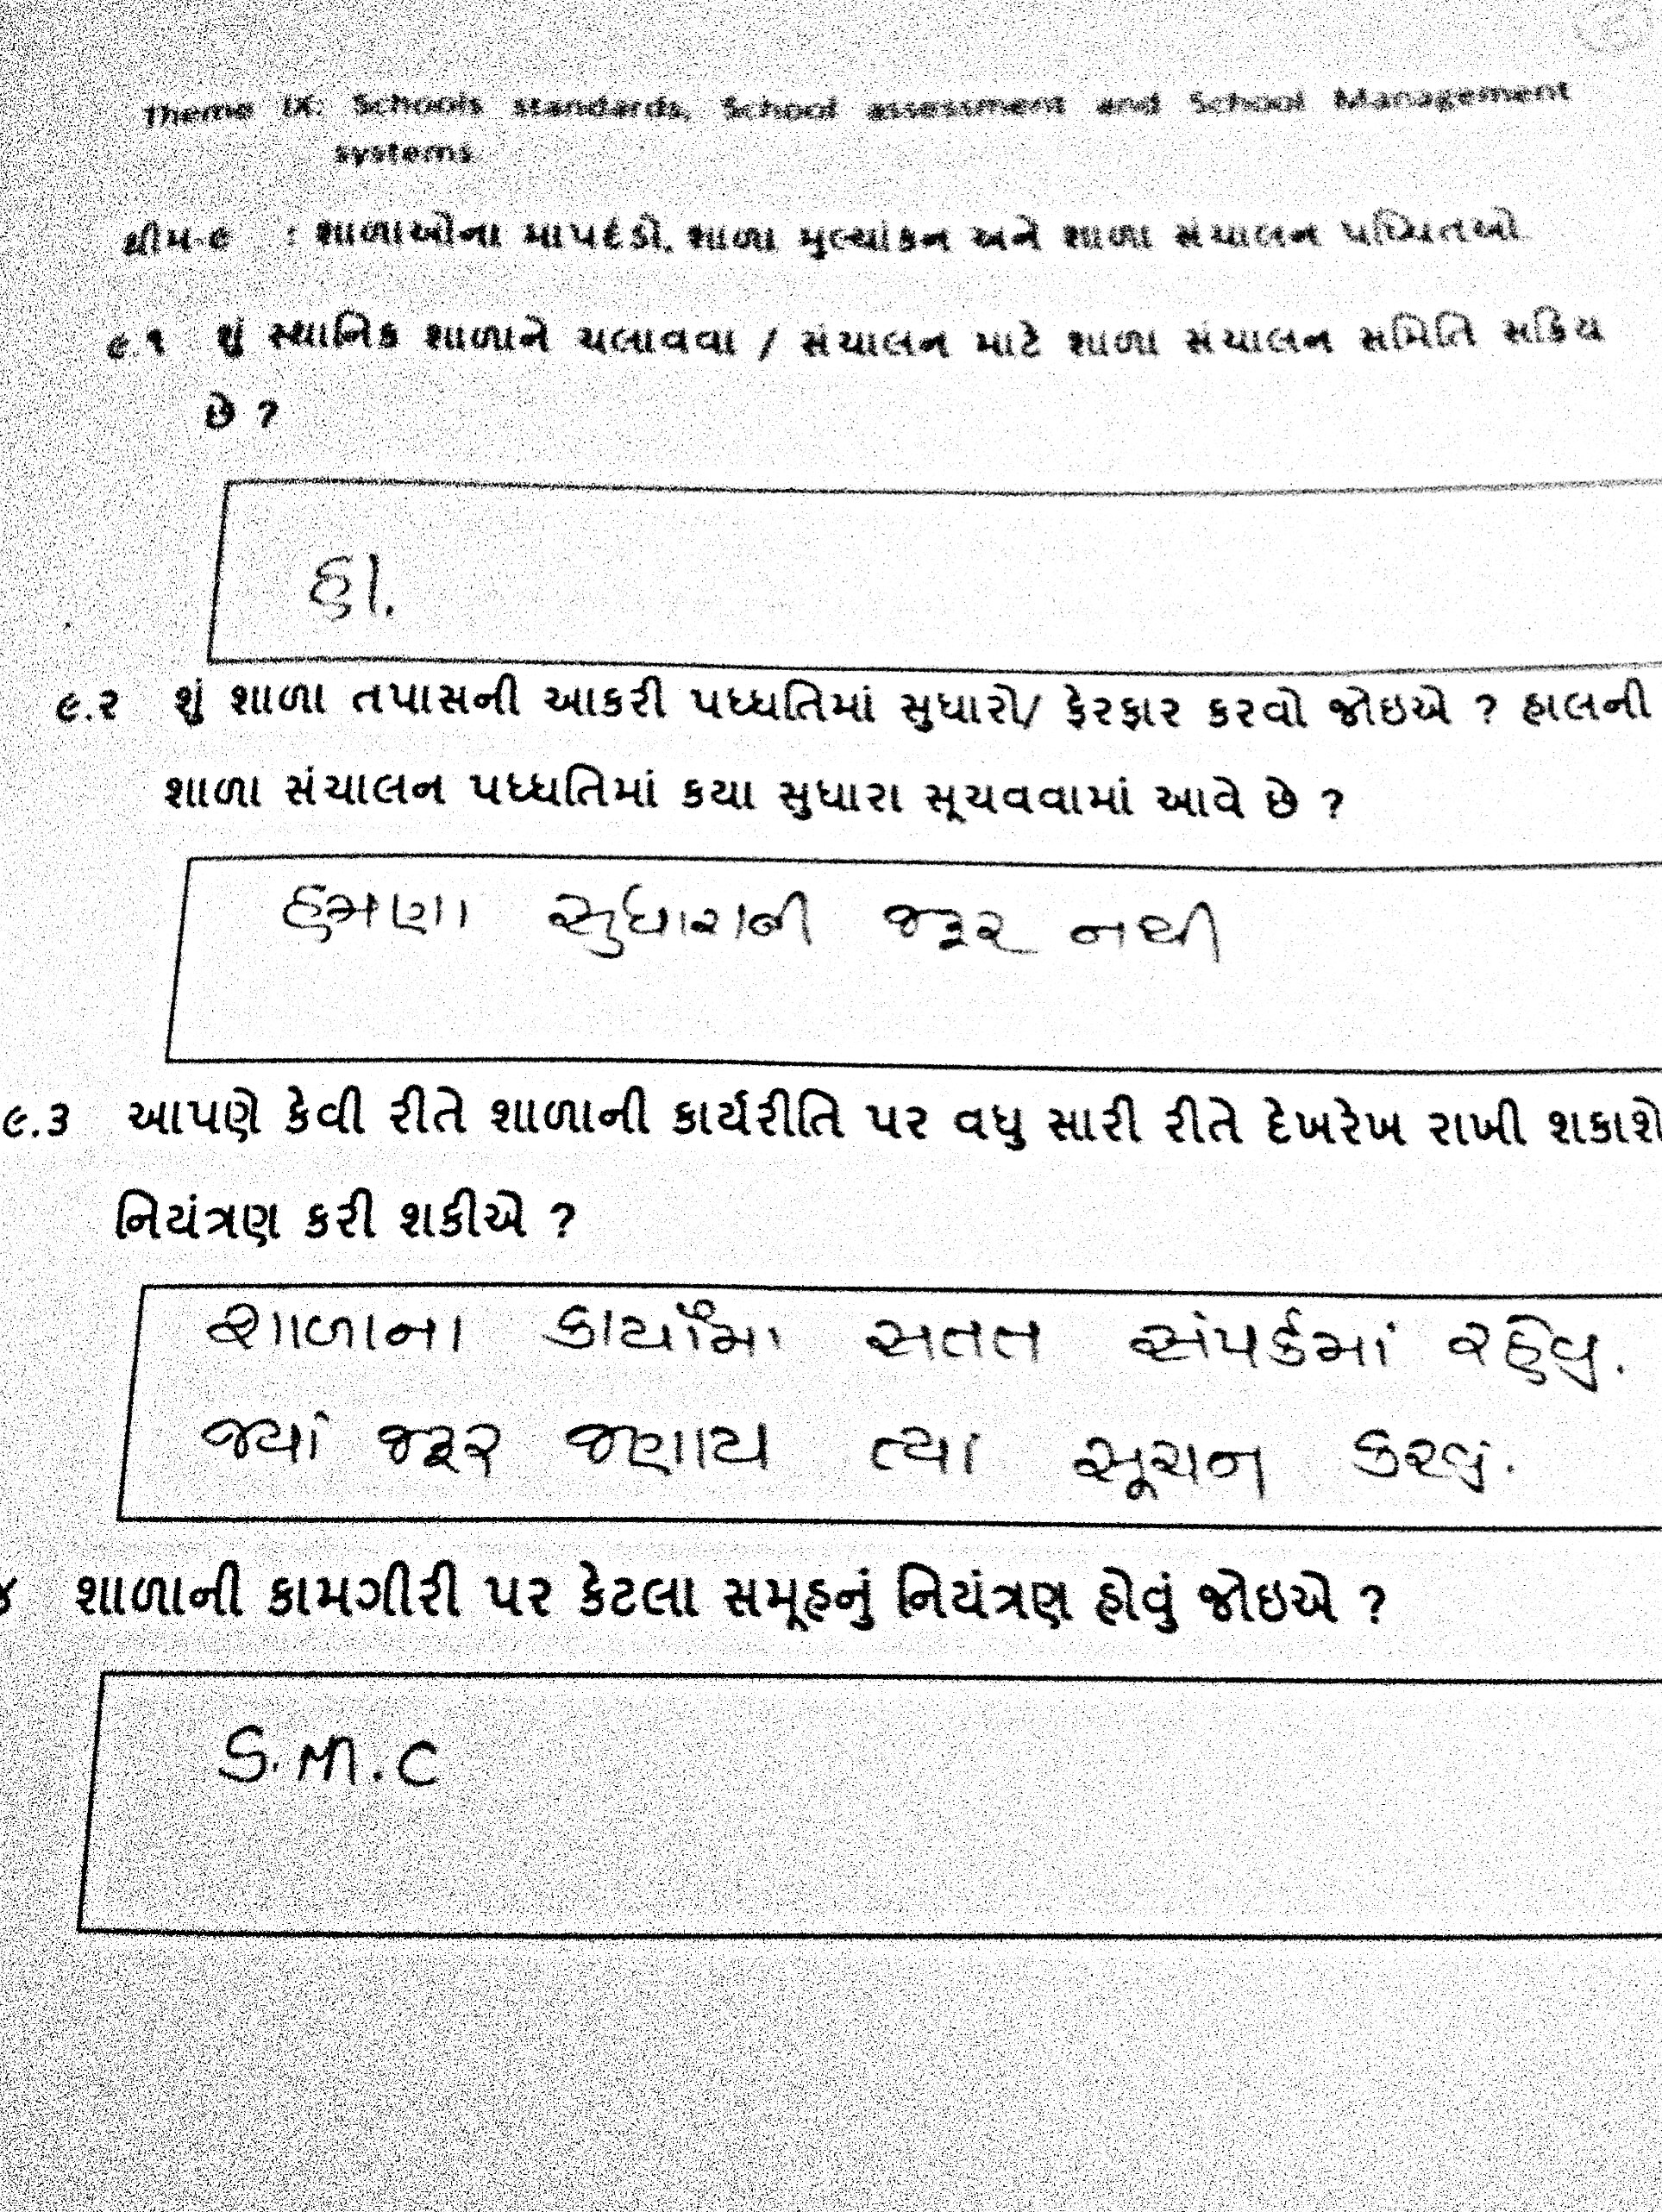 Theme IX: Schools standards, School assessment and School Management
systems
થીમ-૯ : શાળાઓના માપદંડો, શાળા મુલ્યાંકન અને શાળા સંચાલન પધ્ધિતઓ
૯.૧ શું સ્થાનિક શાળાને ચલાવવા / સંચાલન માટે શાળા સંચાલન સમિતિ સક્રિય
છે ?
હા.
૯.૨ શું શાળા તપાસની આકરી પધ્ધતિમાં સુધારો/ ફેરફાર કરવો જોઇએ ? હાલની
શાળા સંચાલન પધ્ધતિમાં કયા સુધારા સૂચવવામાં આવે છે ?
હમણા સુધારાની જરૂર નથી
૯.૩ આપણે કેવી રીતે શાળાની કાર્યરીતિ પર વધુ સારી રીતે દેખરેખ રાખી શકાશે
નિયંત્રણ કરી શકીએ ?
શાળાના કાર્યોમાં સતત સંપર્કમાં રહેવુ.
જ્યાં જરૂર જણાય ત્યાં સૂચન કરવું.
૪ શાળાની કામગીરી પર કેટલા સમૂહનું નિયંત્રણ હોવું જોઇએ ?
S.M.C